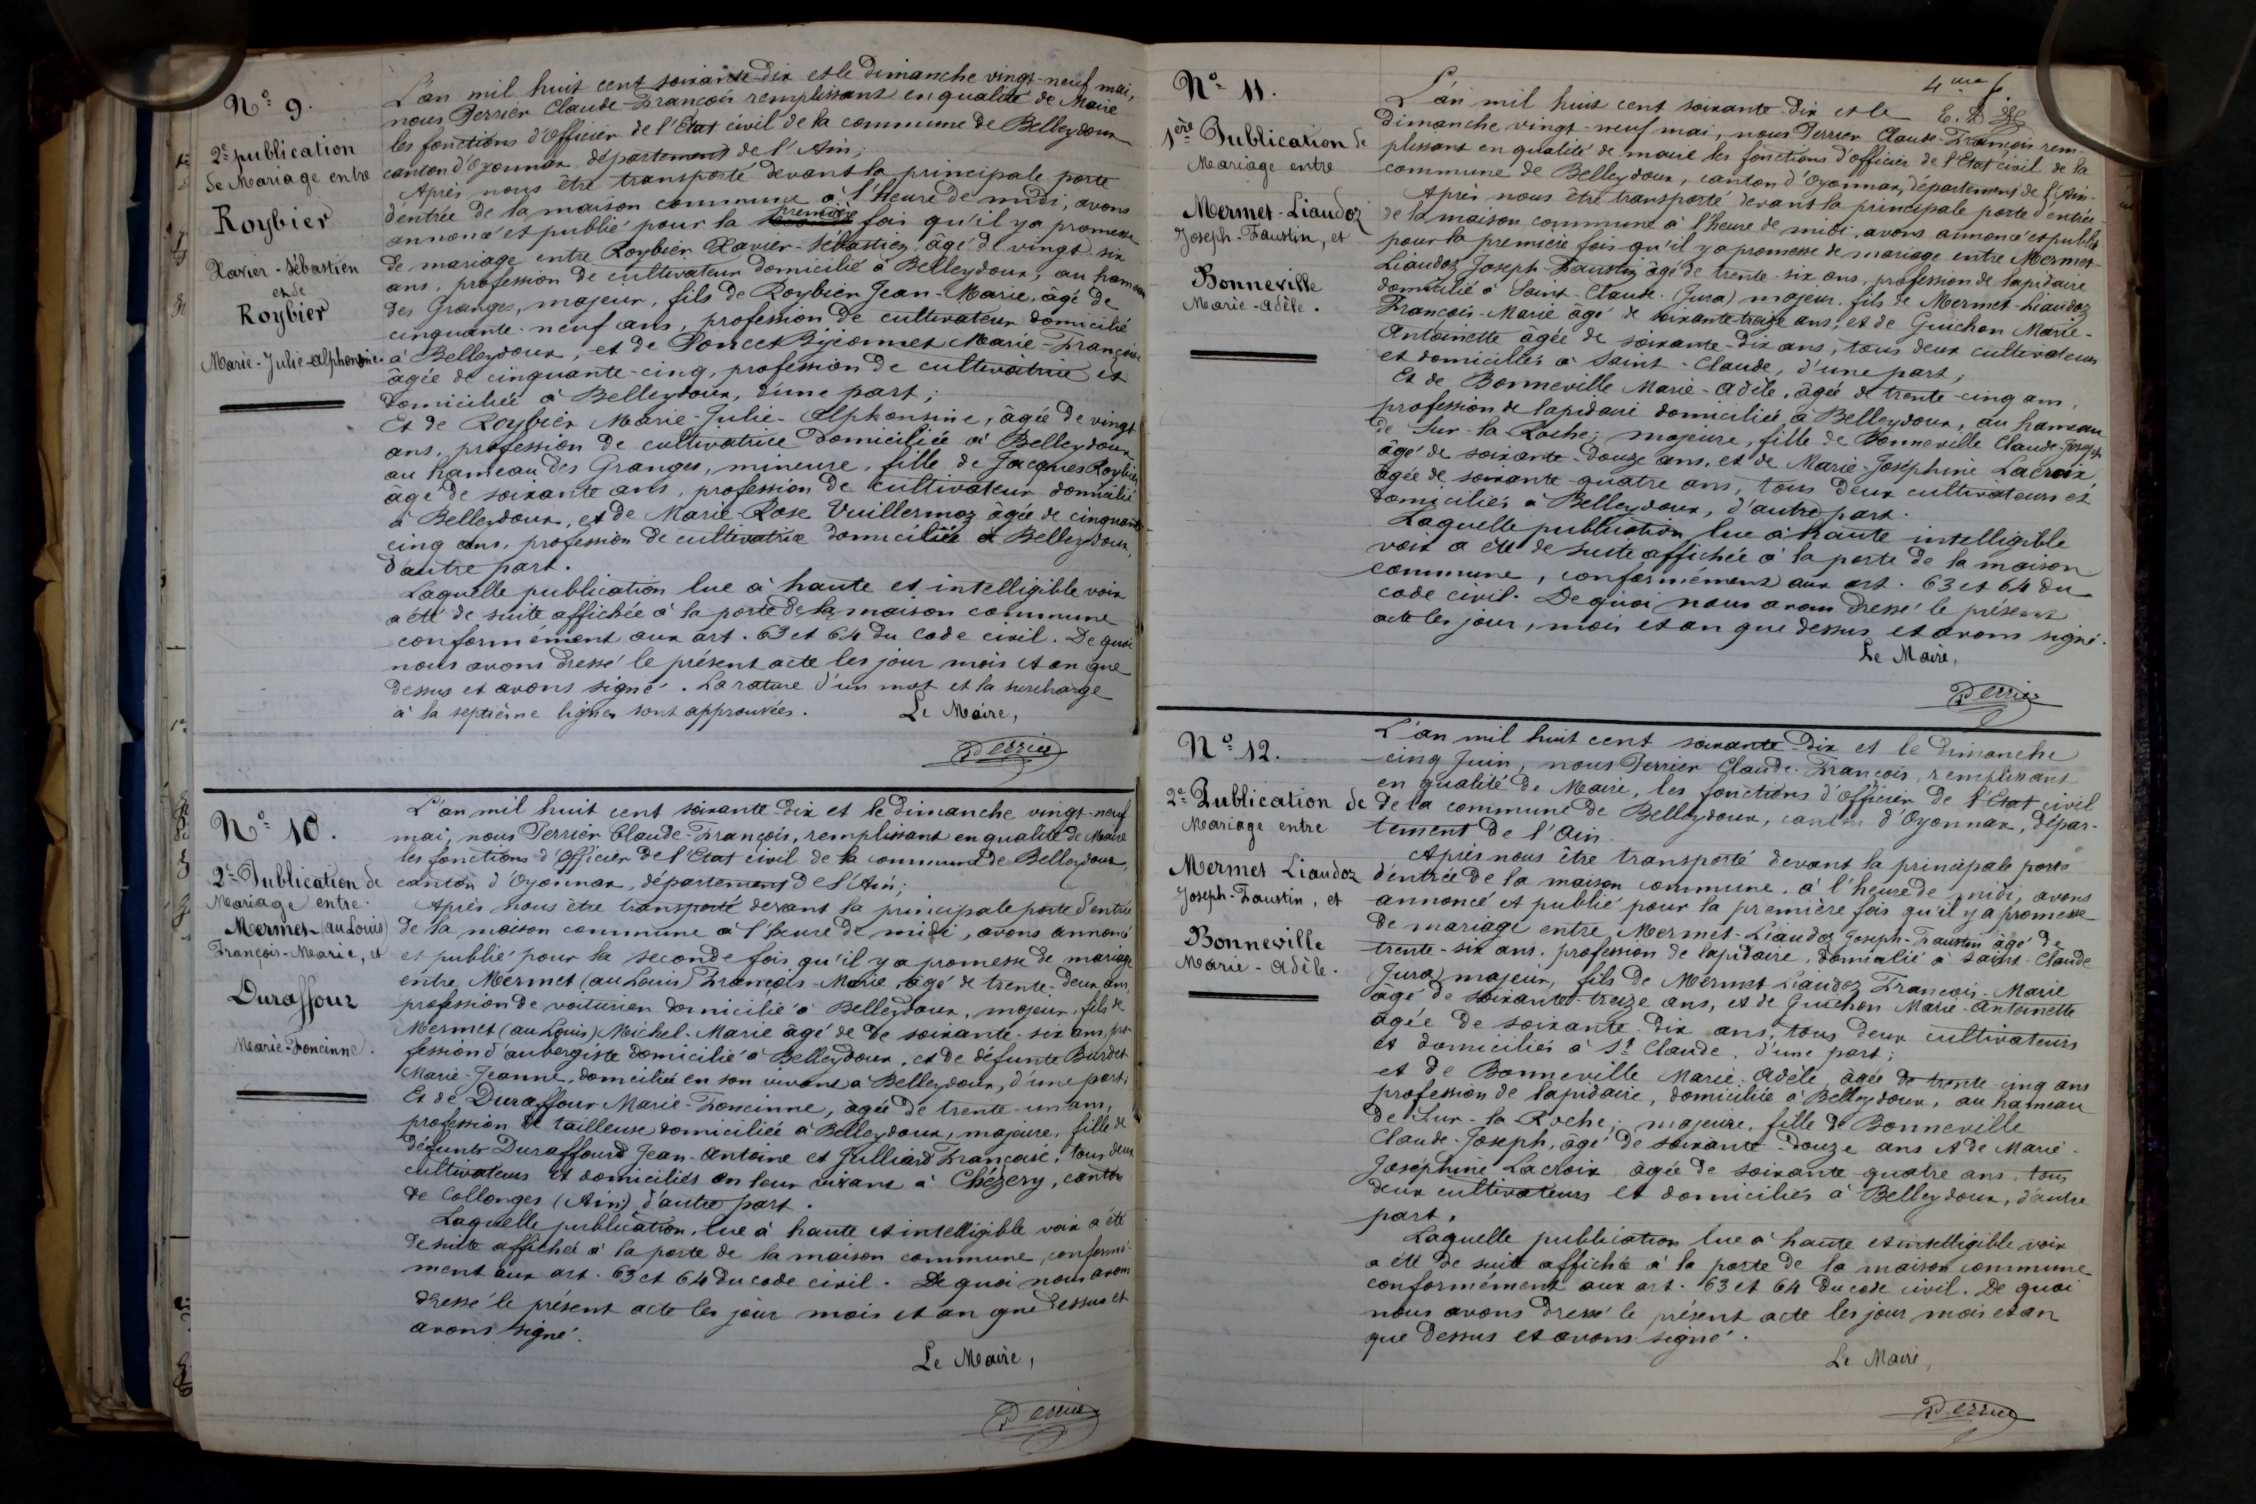 N° 9.
2e publication
de Mariage entre
Roybier
Xavier-Sébastien
et de
Roybier
Marie-Julie-Alphonsine.
L'an mil huit cent soixante-dix et le dimanche vingt-neuf mai,
nous Perrier Claude-François remplissant en qualité de Maire
les fonctions d'Officier de l'Etat civil de la commune de Belleydoux
canton d'Oyonnax département de l'Ain;
Après nous être transporté devant la principale porte
d'entrée de la maison commune à l'heure de midi, avons
annoncé et publié pour la première fois qu'il y a promesse
de mariage entre Roybier Xavier-Sébastien, âgé de vingt six
ans, profession de cultivateur domicilié à Belleydoux, au hameau
des Granges, majeur, fils de Roybier Jean-Marie, âgé de
cinquante-neuf ans, profession de cultivateur domicilié
à Belleydoux, et de Poncet Byjeonnet Marie-Françoise
âgée de cinquante-cinq, profession de cultivatrice et
domiciliée à Belleydoux, d'une part;
Et de Roybier Marie-Julie-Alphonsine, âgée de vingt
ans, profession de cultivatrice domiciliée à Belleydoux
au hameau des Granges, mineure, fille de Jacques Roybier
âgé de soixante ans, profession de cultivateur domicilié
à Belleydoux, et de Marie-Rose Vuillermoz âgée de cinquante
cinq ans, profession de cultivatrice domiciliée à Belleydoux,
d'autre part.
Laquelle publication lue à haute et intelligible voix
a été de suite affichée à la porte de la maison commune
conformément aux art. 63 et 64 du code civil. De quoi
nous avons dressé le présent acte les jour mois et an que
dessus et avons signé. La rature d'un mot et la surcharge
à la septième lignes sont approuvées.
Le Maire,
Perrier
N° 10.
2e Publication de
Mariage entre
Mermet (au Louis)
François-Marie, et
Duraffour
Marie-Foncinne.
L'an mil huit cent soixante-dix et le dimanche vingt-neuf
mai, nous Perrier Claude-François, remplissant en qualité de Maire
les fonctions d'Officier de l'Etat civil de la commune de Belleydoux,
canton d'Oyonnax, département de l'Ain;
Après nous être transporté devant la principale porte d'entrée
de la maison commune à l'heure de midi, avons annoncé
et publié pour la seconde fois qu'il y a promesse de mariage
entre Mermet (au Louis) François-Marie, âgé de trente-deux ans,
profession de voiturier domicilié à Belleydoux, majeur, fils de
Mermet (au Louis) Michel-Marie âgé de de soixante-six ans, pro-
fession d'aubergiste domicilié à Belleydoux, et de défunte Burdet
Marie-Jeanne, domiciliée en son vivant à Belleydoux, d'une part;
Et de Duraffour Marie-Foncinne, âgée de trente-un ans,
profession de tailleuse domiciliée à Belleydoux, majeure, fille de
défunts Duraffourd Jean-Antoine et Julliard Françoise, tous deux
cultivateurs et domiciliés en leur vivant à Chézery, canton
de Collonges (Ain), d'autre part.
Laquelle publication, lue à haute et intelligible voix a été
de suite affichée à la porte de la maison commune, conformé-
ment aux art. 63 et 64 du code civil. De quoi nous avons
dressé le présent acte les jour mois et an que dessus et
avons signé.
Le Maire,
Perrier
N° 11.
1ère Publication de
Mariage entre
Mermet-Liaudoz
Joseph-Faustin, et
Bonneville
Marie-Adèle.
4me f.
L'an mil huit cent soixante-dix et le
dimanche vingt-neuf mai, nous Perrier Claude-François rem-
plissant en qualité de maire les fonctions d'officier de l'Etat civil de la
commune de Belleydoux, canton d'Oyonnax, département de l'Ain.
Après nous être transporté devant la principale porte d'entrée
de la maison commune à l'heure de midi, avons annoncé et publié
pour la première fois qu'il y a promesse de mariage entre Mermet-
Liaudoz Joseph-Faustin âgé de trente-six ans, profession de lapidaire
domicilié à Saint-Claude (Jura) majeur, fils de Mermet-Liaudoz
François-Marie âgé de soixante-treize ans, et de Guichon Marie-
Antoinette âgée de soixante-dix ans, tous deux cultivateurs
et domiciliés à Saint-Claude, d'une part;
Et de Bonneville Marie-Adèle, âgée de trente-cinq ans,
profession de lapidaire domiciliée à Belleydoux, au hameau
de Sur-la Roche; majeure, fille de Bonneville Claude-Joseph
âgé de soixante-douze ans, et de Marie-Joséphine Lacroix,
âgée de soixante-quatre ans, tous deux cultivateurs et
domiciliés à Belleydoux, d'autre part.
Laquelle publication, lue à haute intelligible
voix a été de suite affichée à la porte de la maison
commune, conformément aux art. 63 et 64 du
code civil. De quoi nous avons dressé le présent
acte les jour, mois et an que dessus et avons signé.
Le Maire,
Perrier
N° 12.
2e Publication de
Mariage entre
Mermet Liaudoz
Joseph-Faustin, et
Bonneville
Marie-Adèle.
L'an mil huit cent soixante-dix et le dimanche
cinq Juin, nous Perrier Claude-François, remplissant
en qualité de Maire, les fonctions d'Officier de l'Etat civil
de la commune de Belleydoux, canton d'Oyonnax, dépar-
tement de l'Ain.
Après nous être transporté devant la principale porte
d'entrée de la maison commune, à l'heure de midi, avons
annoncé et publié pour la première fois qu'il y a promesse
de mariage entre Mermet-Liaudoz Joseph-Faustin âgé de
trente-six ans, profession de lapidaire, domicilié à Saint-Claude
(Jura) majeur, fils de Mermet Liaudoz François-Marie
âgé de soixante-treize ans, et de Guichon Marie-Antoinette
âgée de soixante-dix ans, tous deux cultivateurs
et domiciliés à St Claude, d'une part;
et de Bonneville Marie-Adèle, âgée de trente cinq ans
profession de lapidaire, domiciliée à Belleydoux, au hameau
de Sur-la Roche; majeure, fille de Bonneville
Claude-Joseph, âgé de soixante-douze ans et de Marie-
Joséphine Lacroix âgée de soixante-quatre ans, tous
deux cultivateurs et domiciliés à Belleydoux, d'autre
part.
Laquelle publication lue à haute et intelligible voix
a été de suite affichée à la porte de la maison commune
conformément aux art. 63 et 64 du code civil. De quoi
nous avons dressé le présent acte les jour mois et an
que dessus et avons signé.
Le Maire,
Perrier